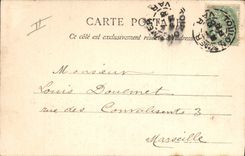 II
CARTE POSTALE
Ce côté est exclusivement réservé
VAR
Monsieur
Louis Doulmet
rue des Convalescents 3
Marseille